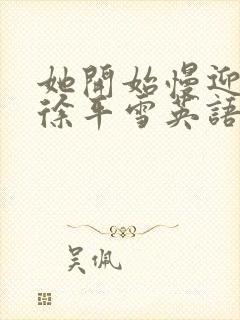 她開始慢迎
徐平雪英語
吴佩